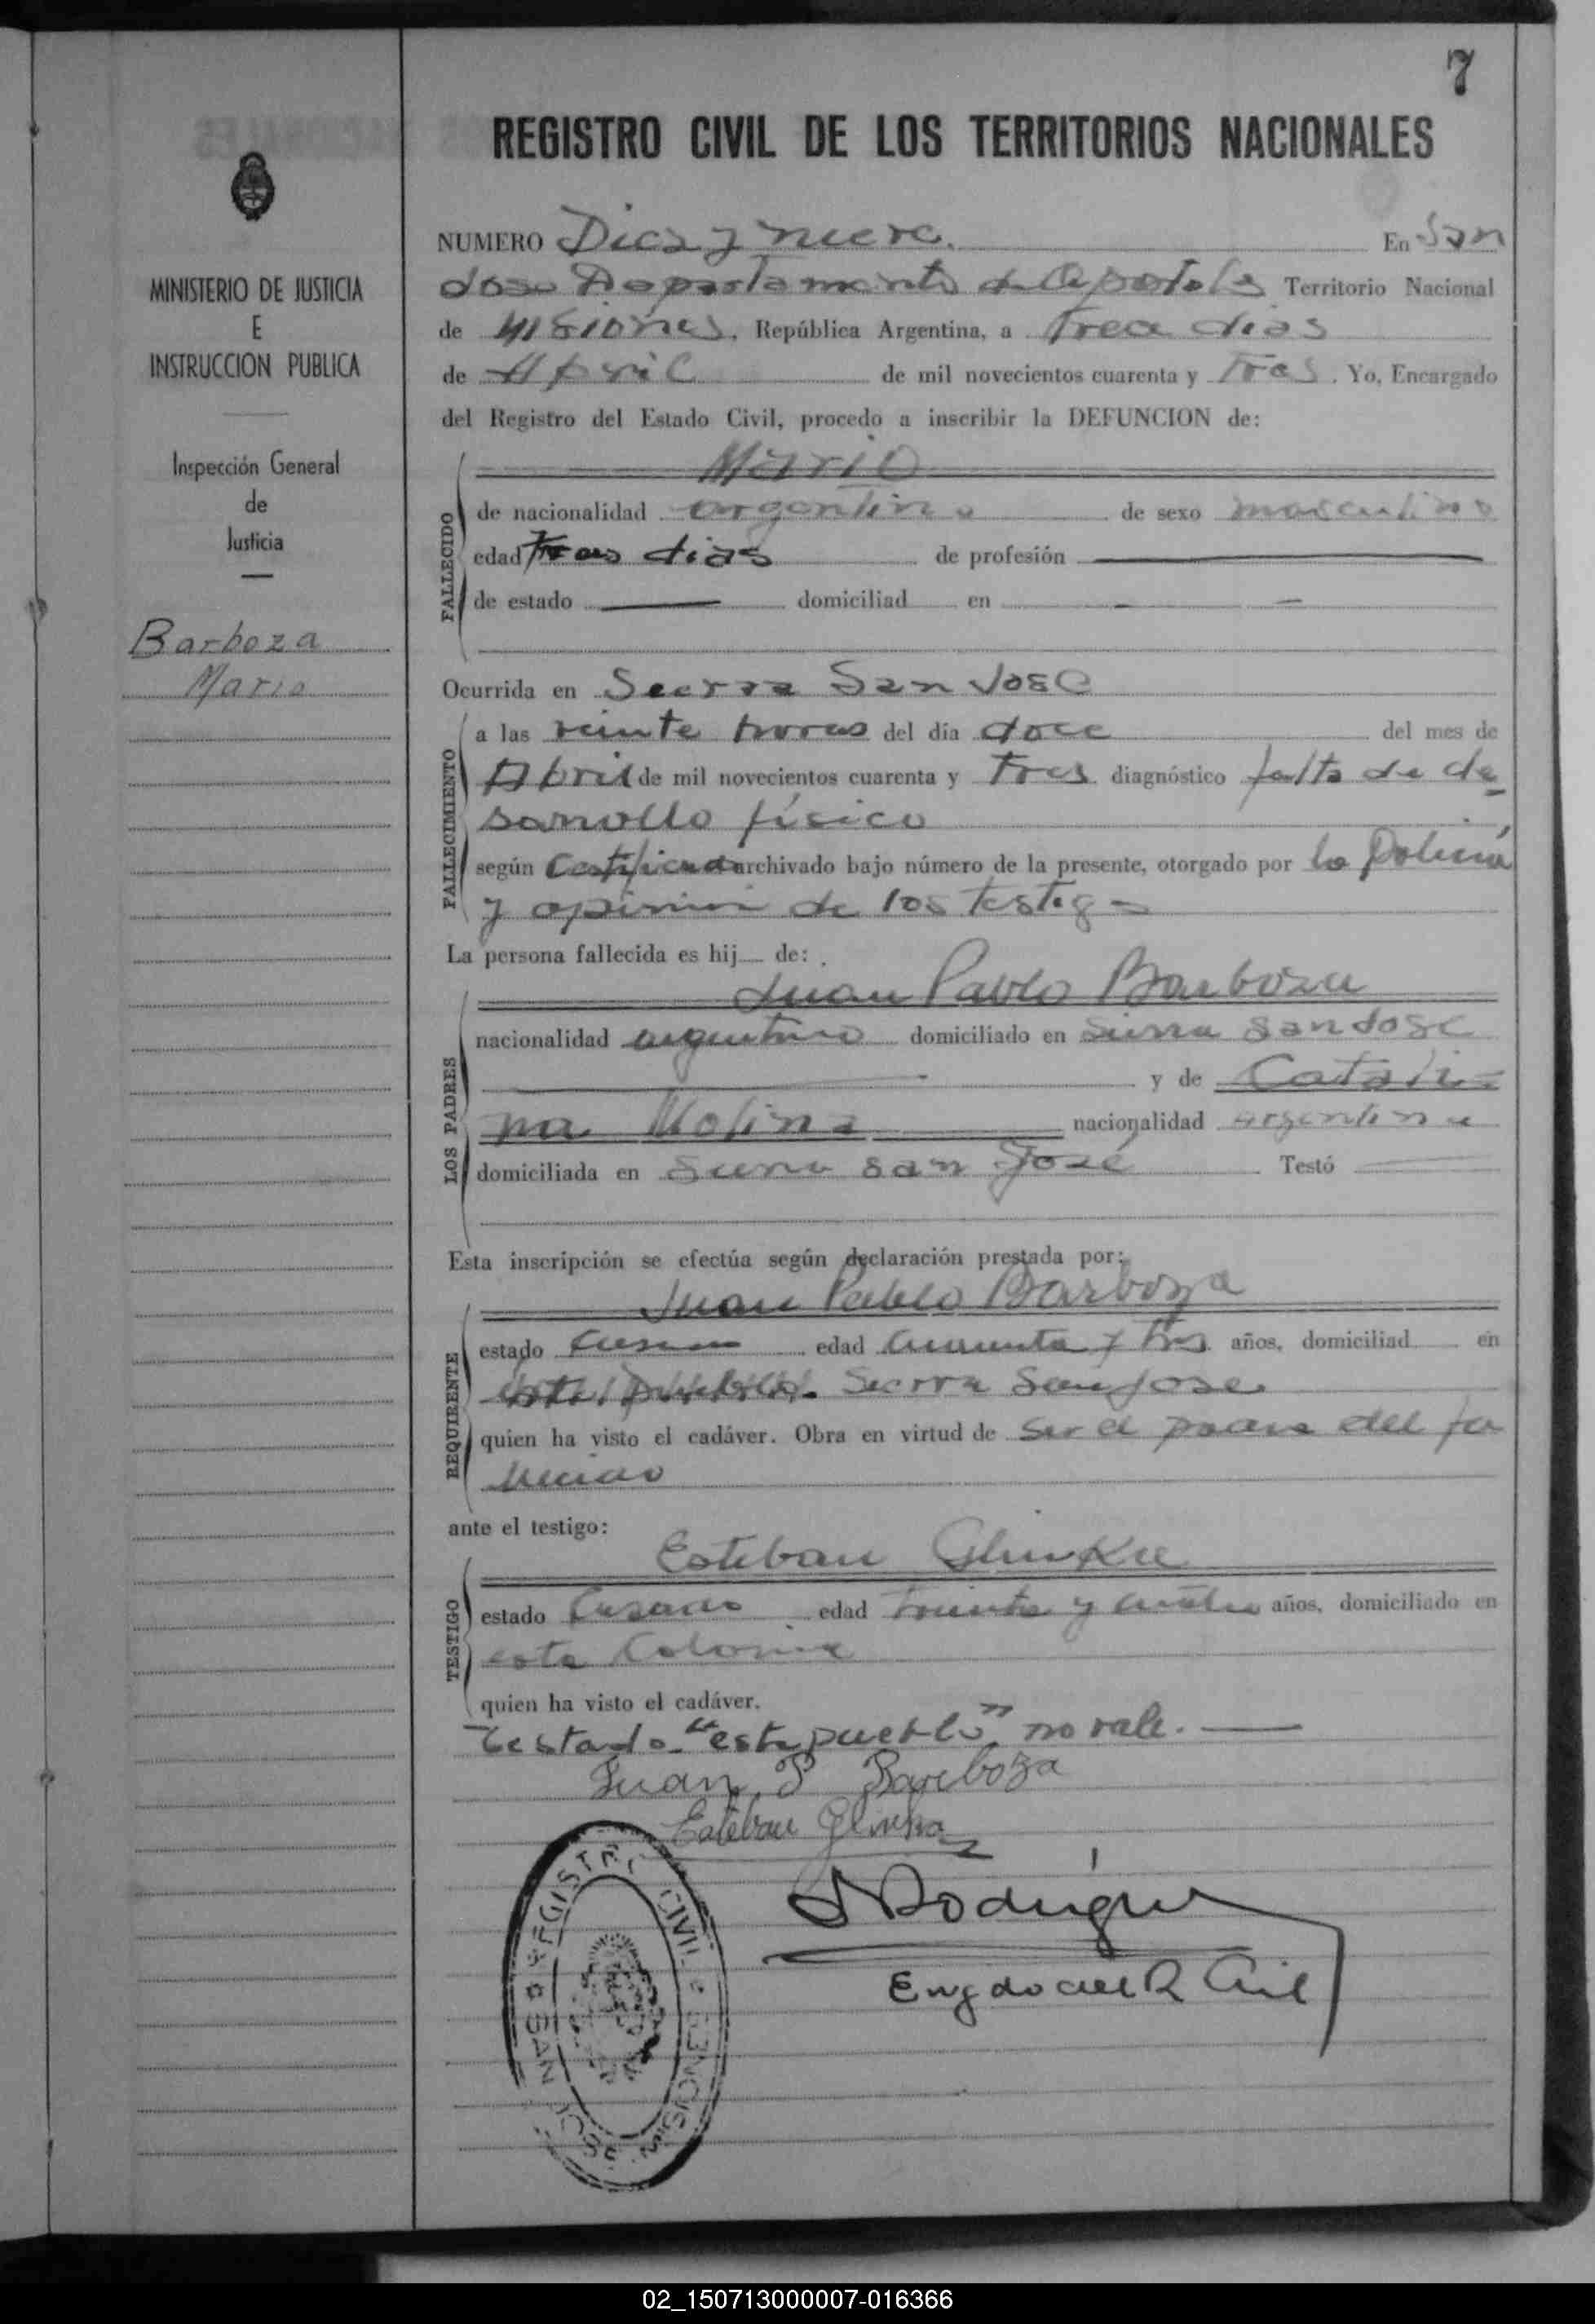 7
REGISTRO CIVIL DE LOS TERRITORIOS NACIONALES
MINISTERIO DE JUSTICIA
E
INSTRUCCION PUBLICA
Inspección General
de
Justicia
Barboza
Mario
NUMERO Diez y nueve. En San
José Departamento de Apostoles Territorio Nacional
de Misiones, República Argentina, a trece dias
de Abril de mil novecientos cuarenta y tres. Yo, Encargado
del Registro del Estado Civil, procedo a inscribir la DEFUNCION de:
Mario
FALLECIDO
de nacionalidad argentino de sexo masculino
edad tres dias de profesión
de estado domiciliad en
Ocurrida en Sierra San José
FALLECIMIENTO
a las veinte horas del día doce del mes de
Abril de mil novecientos cuarenta y tres diagnóstico falta de de
sarrollo físico
según Certificado archivado bajo número de la presente, otorgado por la Policia
y opinion de los testigos
La persona fallecida es hij de:
LOS PADRES
Juan Pablo Barboza
nacionalidad argentino domiciliado en Sierra San José
y de Catali=
na Molina nacionalidad argentina
domiciliada en Sierra San José Testó
Esta inscripción se efectúa según declaración prestada por:
REQUIRENTE
Juan Pablo Barboza
estado casado edad cuarenta y tres años, domiciliad en
este pueblo. Sierra San Jose
quien ha visto el cadáver. Obra en virtud de ser el padre del fa
llecido
ante el testigo:
TESTIGO
Esteban Glinka
estado Casado edad treinta y cuatro años, domiciliado en
esta Colonia
quien ha visto el cadáver.
Testado "este pueblo" no vale.
Juan P Bareboza
Esteban Glinka
Rodriguez
Engdo del R Civil
REGISTRO CIVIL
SAN JOSE MISIONES
02_150713000007-016366